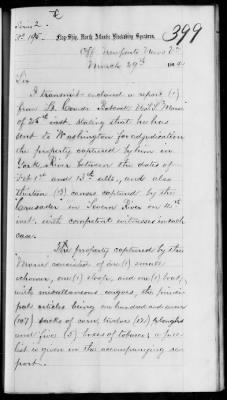 399
Flag-Ship, North Atlantic Blockading Squadron,
Off Newport's News Va
March 29th 1864
Sir
I transmit enclosed a report (1)
from Lt Comdr Babcock
of 26th inst. stating that he has
sent to Washington for adjudication
the property captured by him in
York River between the dates of
Feb 1st and 13th ulto., and also
thirteen (13) canoes captured by the
"Crusader" in Severn River on 11th
inst. with competent witnesses in each
case.
The property captured by the
"Morse" consisted of one (1) small
schooner, one (1) sloop, and one (1) boat,
with miscellaneous cargoes, the princi-
pal articles being one hundred and seven
(107) sacks of corn, twelve (12) ploughs
and five (5) boxes of tobacco; a full
list is given in the accompanying re-
port.